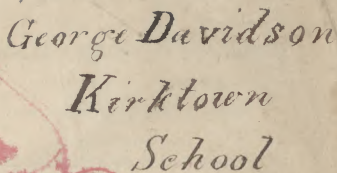 George Davidson
Kirktown
School